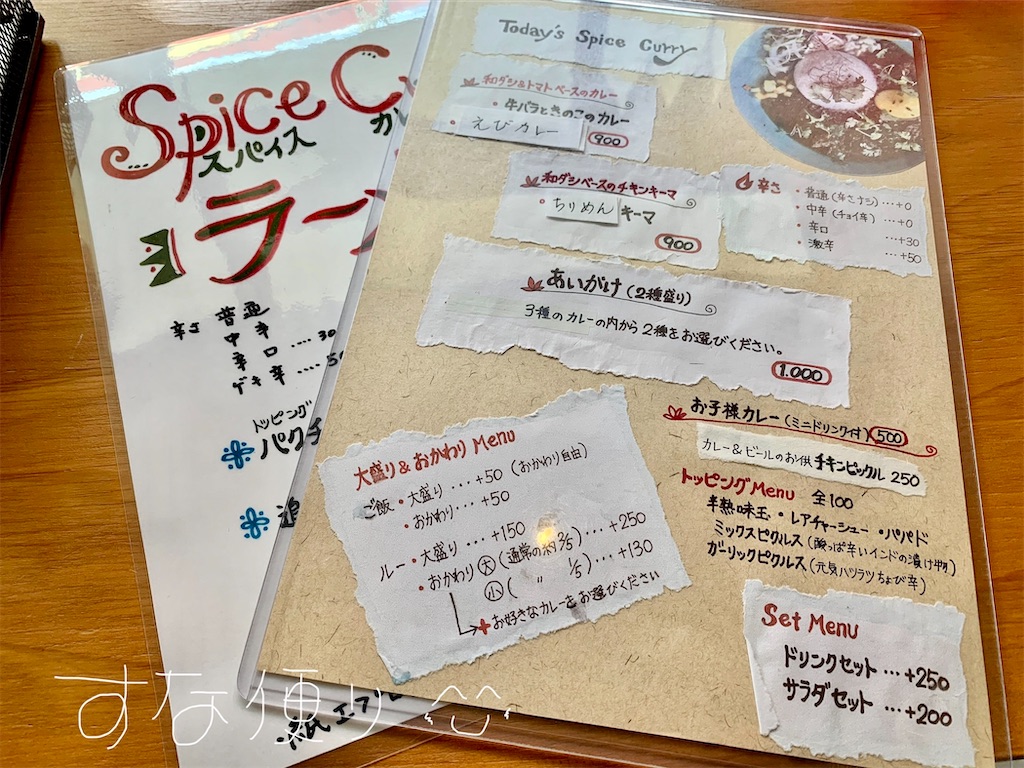 Today's Spice Curry
和ダシ&トマトベースのカレー
・牛バラときのこのカレー
・えびカレー
900
和ダシベースのチキンキーマ
・ちりめんキーマ
900
辛さ
・普通(辛さナシ)…+0
・中辛(チョイ辛)…+0
・辛口 …+30
・激辛 …+50
あいがけ(2種盛り)
3種のカレーの内から2種をお選びください。
1.000
お子様カレー(ミニドリンク付)500
カレー&ビールのお供 チキンピックル 250
トッピングMenu 全100
半熟味玉・レアチャーシュー・パパド
ミックスピクルス(酸っぱ辛いインドの漬け物)
ガーリックピクルス(元気ハツラツちょび辛)
大盛り&おかわり Menu
ご飯・大盛り…+50(おかわり自由)
・おかわり…+50
ルー・大盛り…+150
・おかわり 大(通常の約3/5)…+250
小(〃 1/5)…+130
お好きなカレーをお選びください
Set Menu
ドリンクセット…+250
サラダセット…+200
Spice
スパイス
辛さ 普通
中辛
辛口....30
ゲキ辛....5
トッピング
パクチ
追
紙エプ
すな便り